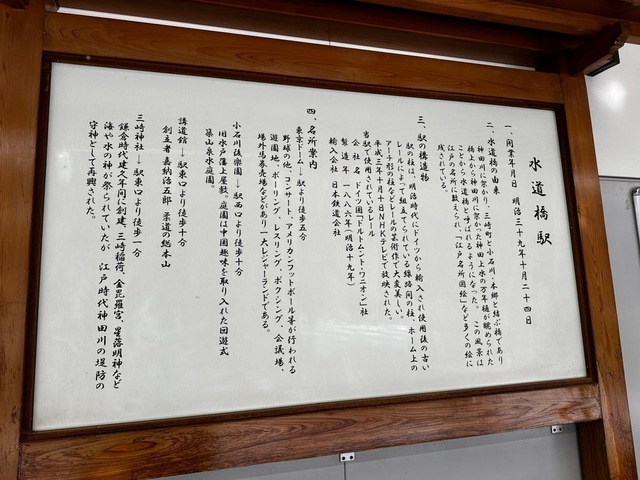 水道橋駅
一、開業年月日 明治三十九年十月二十四日
二、水道橋の由来
神田川に架かり、三崎町と小石川・本郷と結ぶ橋であり
橋上から神田川に架かった神田上水の万年樋が眺められた
ことから水道橋と呼ばれるようになった。この風景は
江戸の名所に数えられ、「江戸名所図絵」など多くの絵に
残されている。
三、駅の構造物
駅の柱は、明治時代にドイツから輸入され使用後の古い
レールによって組立てられている線路間の柱、ホーム上の
アーチ形の柱などレールの芸術作で大変美しい。
平成三年 月十日NHKテレビで放映された。
当駅で使用されているレール
会社名 ドイツ国「ドルトムント・ワニオン」社
製造年 一八八六年(明治十九年)
輸入会社 日本鉄道会社
四、名所案内
東京ドーム→駅より徒歩五分
野球の他、コンサート、アメリカンフットボール等が行われる
遊園地、ボーリング、レスリング、ボクシング、会議場、
場外馬券売場などがあり一大レジャーランドである。
小石川後楽園→駅西口より徒歩十分
旧水戸藩上屋敷。庭園は中国趣味を取り入れた回遊式
築山泉水庭園。
講道館→駅東口より徒歩十分
創立者 嘉納治五郎 柔道の総本山
三崎神社→駅東口より徒歩一分
鎌倉時代建久年間に創建、三崎稲荷、金毘羅宮、星落明神など
海や水の神が祭られていたが 江戸時代神田川の堤防の
守神として再興された。